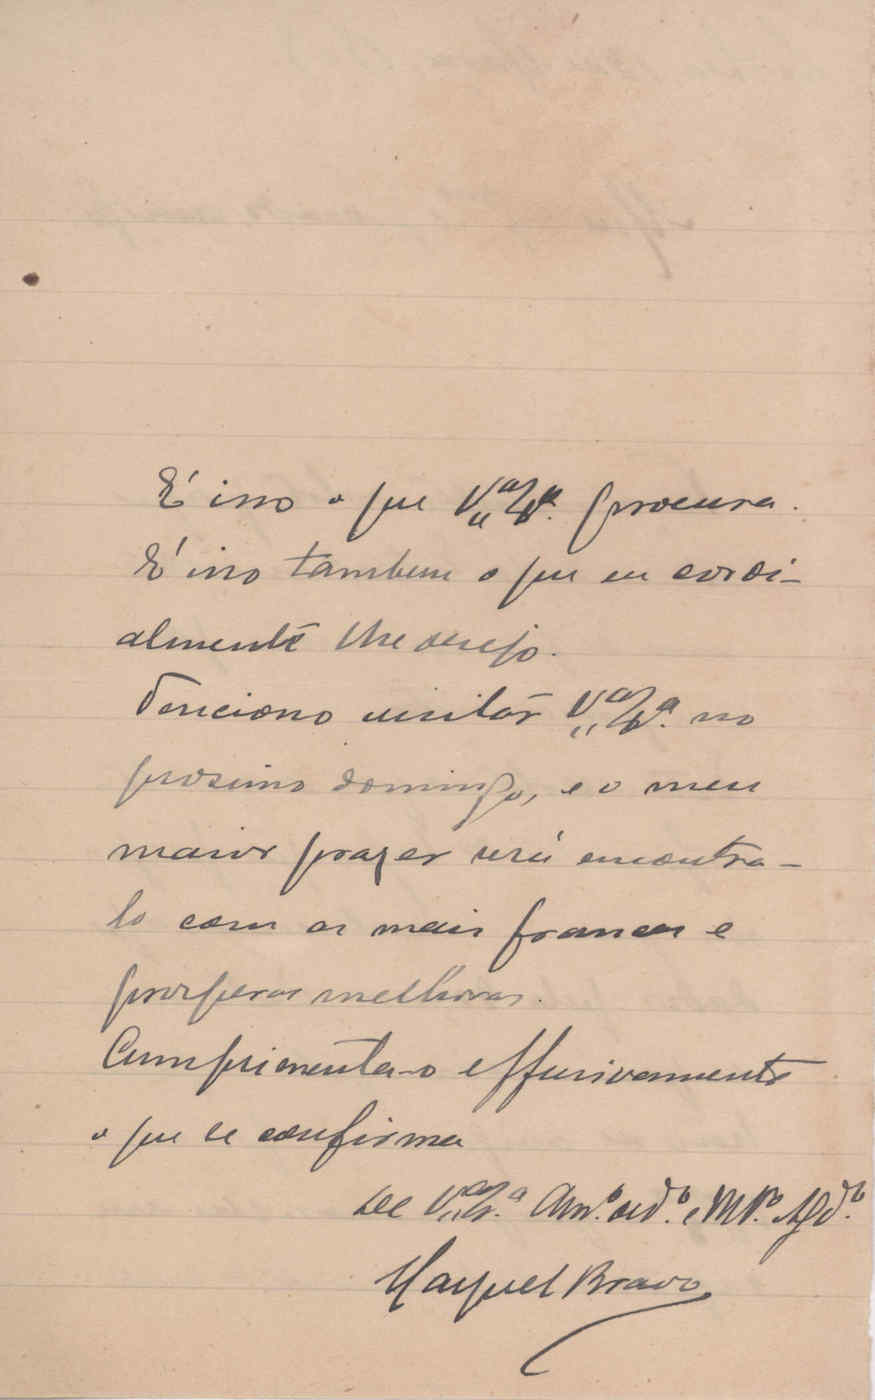 É isso o que V.ª Ex.ª procura.
É isso tambem o que eu cordi-
almente lhe desejo.
Tenciono visitár V.ª Ex.ª no
proximo domingo, e o meu
maior prazer será encontra-
lo com as mais francas e
prosperas melhoras.
Cumprimenta-o effusivamente
o que se confirma
De V.ª Ex.ª Am.º ded.º e Mt.º Agd.º
Maymel Bravo